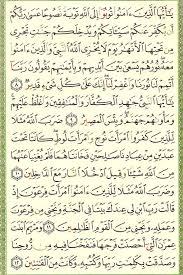 يَٰٓأَيُّهَا ٱلَّذِينَ ءَامَنُوا۟ تُوبُوٓا۟ إِلَى ٱللَّهِ تَوْبَةً نَّصُوحًا عَسَىٰ رَبُّكُمْ
أَن يُكَفِّرَ عَنكُمْ سَيِّـَٔاتِكُمْ وَيُدْخِلَكُمْ جَنَّٰتٍ تَجْرِى
مِن تَحْتِهَا ٱلْأَنْهَٰرُ يَوْمَ لَا يُخْزِى ٱللَّهُ ٱلنَّبِىَّ وَٱلَّذِينَ ءَامَنُوا۟
مَعَهُۥ نُورُهُمْ يَسْعَىٰ بَيْنَ أَيْدِيهِمْ وَبِأَيْمَٰنِهِمْ يَقُولُونَ رَبَّنَآ
أَتْمِمْ لَنَا نُورَنَا وَٱغْفِرْ لَنَآ إِنَّكَ عَلَىٰ كُلِّ شَىْءٍ قَدِيرٌ ٨
يَٰٓأَيُّهَا ٱلنَّبِىُّ جَٰهِدِ ٱلْكُفَّارَ وَٱلْمُنَٰفِقِينَ وَٱغْلُظْ عَلَيْهِمْ
وَمَأْوَىٰهُمْ جَهَنَّمُ وَبِئْسَ ٱلْمَصِيرُ ٩ ضَرَبَ ٱللَّهُ مَثَلًا
لِّلَّذِينَ كَفَرُوا۟ ٱمْرَأَتَ نُوحٍ وَٱمْرَأَتَ لُوطٍ كَانَتَا تَحْتَ
عَبْدَيْنِ مِنْ عِبَادِنَا صَٰلِحَيْنِ فَخَانَتَاهُمَا فَلَمْ يُغْنِيَا عَنْهُمَا
مِنَ ٱللَّهِ شَيْـًٔا وَقِيلَ ٱدْخُلَا ٱلنَّارَ مَعَ ٱلدَّٰخِلِينَ ١٠
وَضَرَبَ ٱللَّهُ مَثَلًا لِّلَّذِينَ ءَامَنُوا۟ ٱمْرَأَتَ فِرْعَوْنَ إِذْ
قَالَتْ رَبِّ ٱبْنِ لِى عِندَكَ بَيْتًا فِى ٱلْجَنَّةِ وَنَجِّنِى مِن فِرْعَوْنَ
وَعَمَلِهِۦ وَنَجِّنِى مِنَ ٱلْقَوْمِ ٱلظَّٰلِمِينَ ١١ وَمَرْيَمَ ٱبْنَتَ
عِمْرَٰنَ ٱلَّتِىٓ أَحْصَنَتْ فَرْجَهَا فَنَفَخْنَا فِيهِ مِن رُّوحِنَا
وَصَدَّقَتْ بِكَلِمَٰتِ رَبِّهَا وَكُتُبِهِۦ وَكَانَتْ مِنَ ٱلْقَٰنِتِينَ ١٢